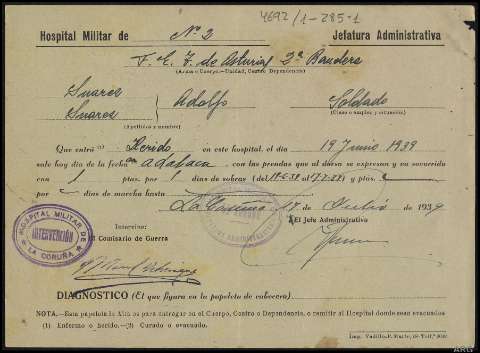 4692/1-285-1
Hospital Militar de Nº 2 Jefatura Administrativa
F. E. T. de Asturias 2ª Bandera
(Arma o Cuerpo.—Unidad, Centro Dependencia)
Suarez
Suarez } Adolfo Soldado
(Apellidos y nombre) (Clase o empleo y situación)
Que entró (1) Herido en este hospital, el día 19 Junio 1939
sale hoy día de la fecha con las prendas que al dorso se expresan y va socorrido
con 1 ptas. por 1 días de sobras (del al ) y ptas.
por días de marcha hasta
La Coruña 17 de Julio 1939
Intervine: El Jefe Administrativo
El Comisario de Guerra
HOSPITAL MILITAR DE LA CORUÑA
INTERVENCIÓN
DIAGNOSTICO (El que figura en la papeleta de cabecera)
NOTA.—Esta papeleta la Alta es para entregar en el Cuerpo, Centro o Dependencia, o remitir al Hospital donde sean evacuados
(1) Enfermo o herido.—(2) Curado o evacuado.